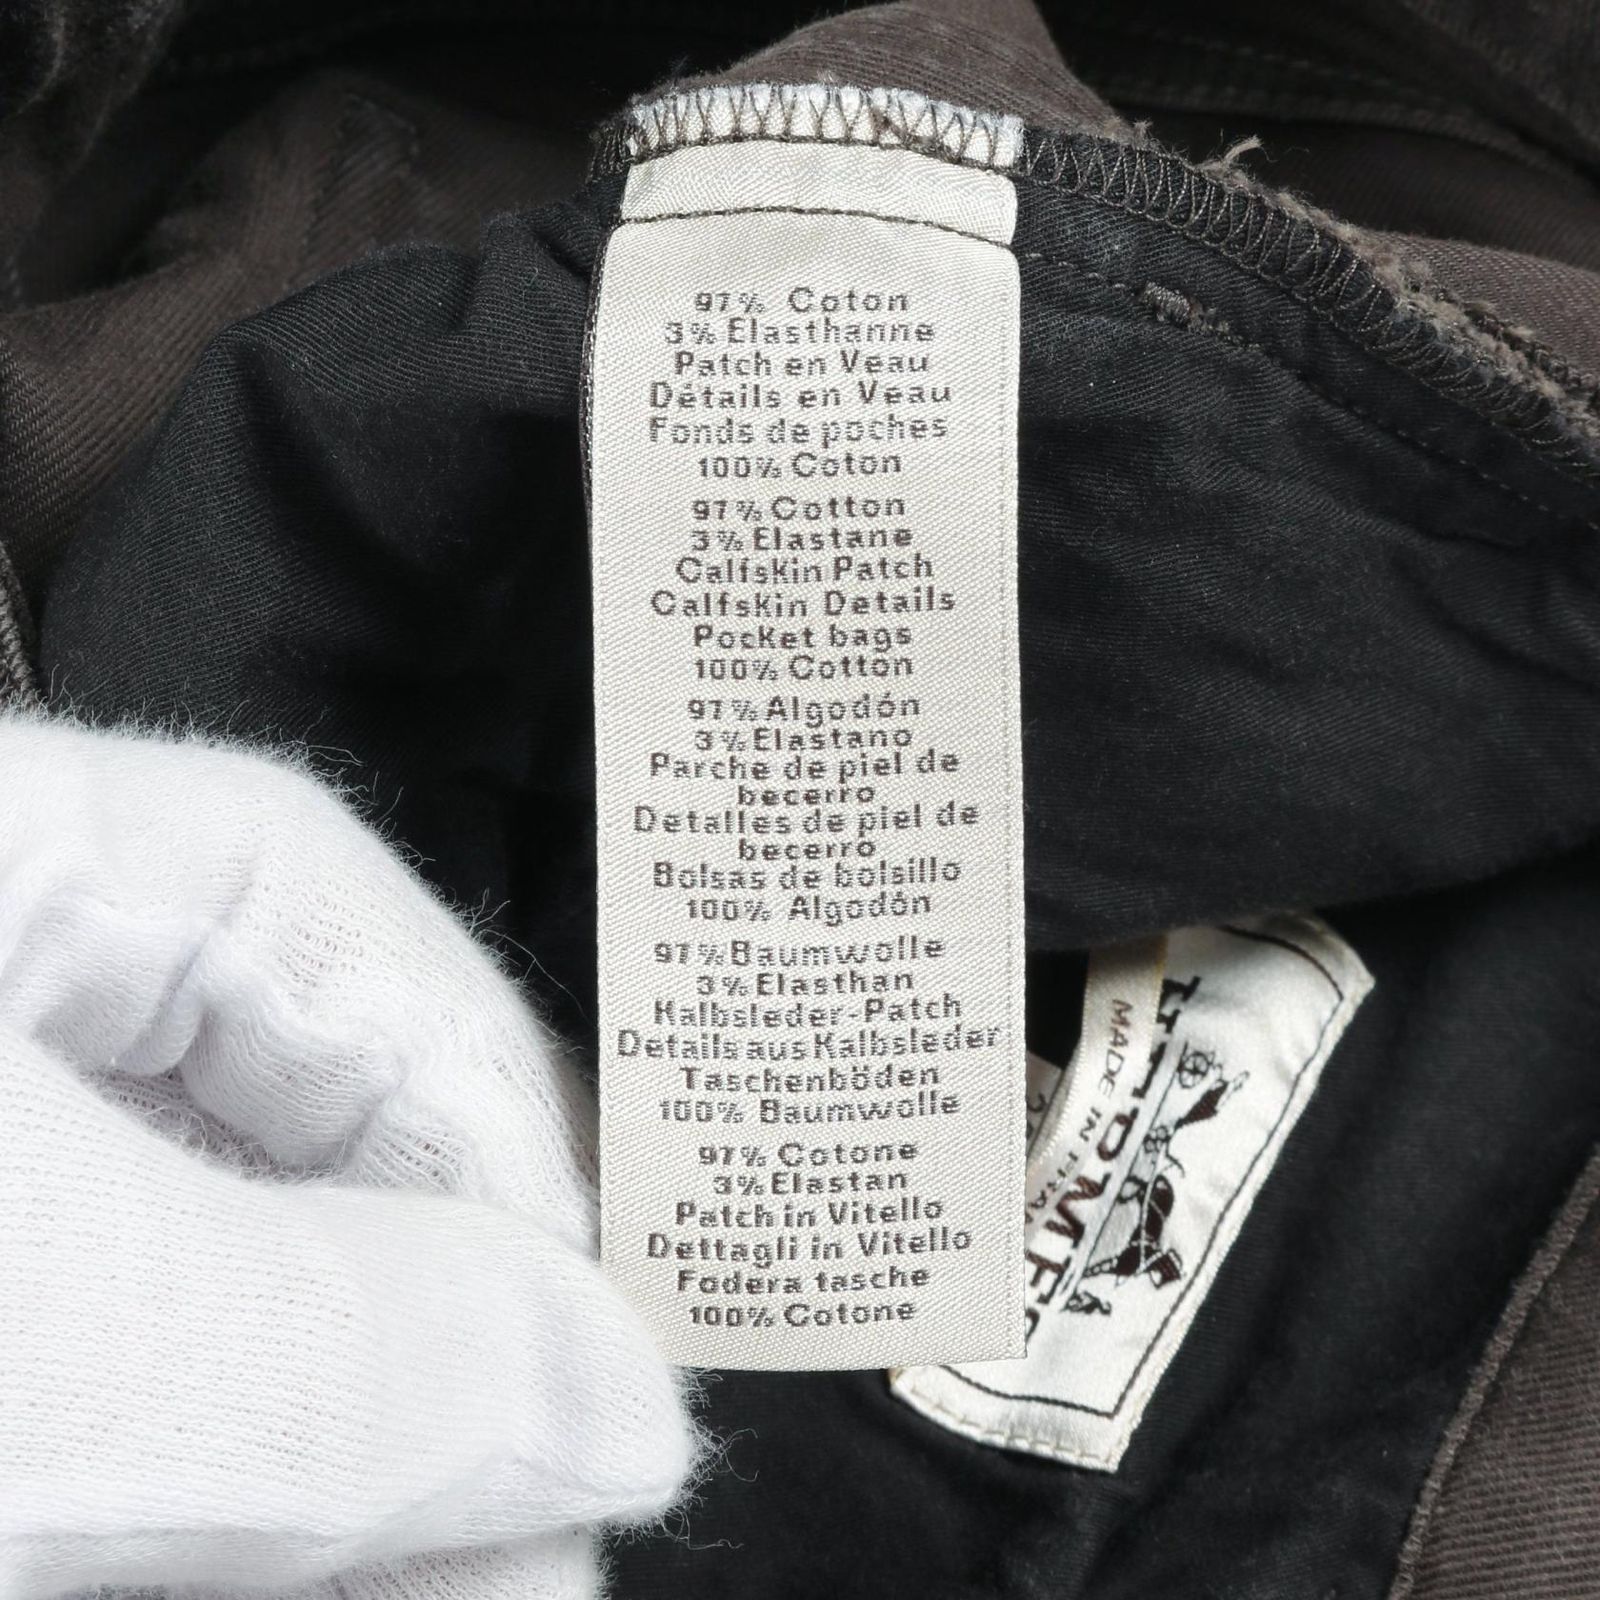 97% Coton
3% Elasthanne
Patch en Veau
Détails en Veau
Fonds de poches
100% Coton
97% Cotton
3% Elastane
Calfskin Patch
Calfskin Details
Pocket bags
100% Cotton
97% Algodón
3% Elastano
Parche de piel de
becerro
Detalles de piel de
becerro
Bolsas de bolsillo
100% Algodón
97% Baumwolle
3% Elasthan
Kalbsleder-Patch
Details aus Kalbsleder
Taschenböden
100% Baumwolle
97% Cotone
3% Elastan
Patch in Vitello
Dettagli in Vitello
Fodera tasche
100% Cotone
MADE IN